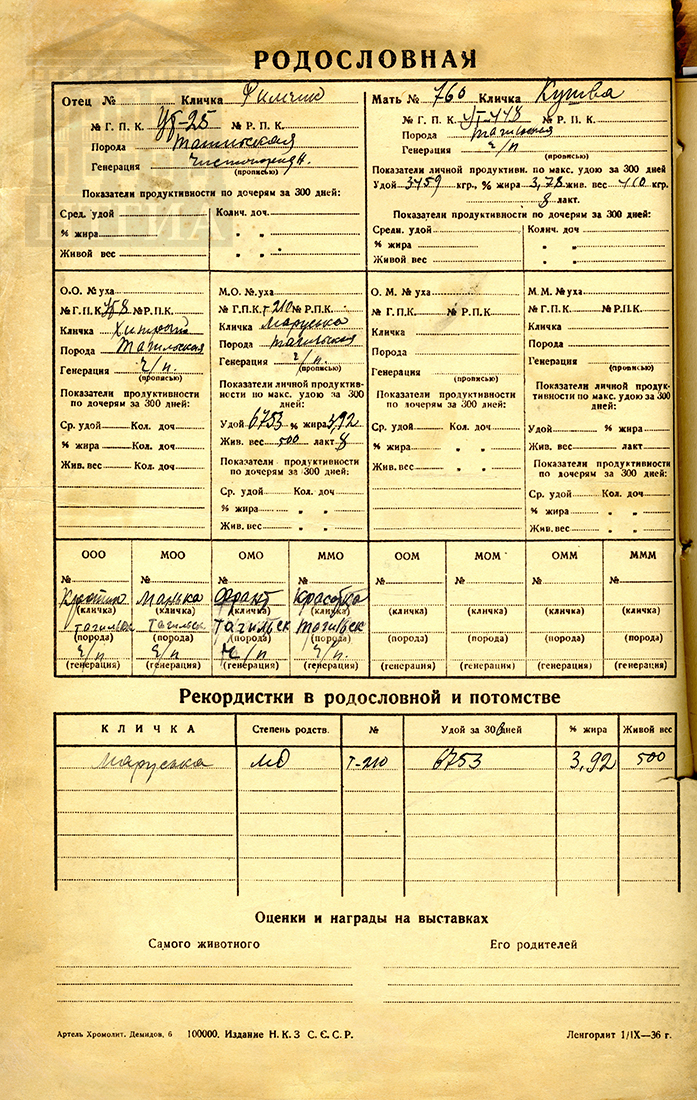 РОДОСЛОВНАЯ
Отец № Кличка Фимчик
№ Г. П. К. УТ-25 № Р. П. К.
Порода Тагильская
Генерация Чистопородн.
(прописью)
Показатели продуктивности по дочерям за 300 дней:
Сред. удой Колич. доч.
% жира " "
Живой вес " "
Мать № 760 Кличка Кушва
№ Г. П. К. УТ-448 № Р. П. К.
Порода Тагильская
Генерация ч/п
(прописью)
Показатели личной продуктивн. по макс. удою за 300 дней
Удой 3459 кгр., % жира 3,78 жив. вес 410 кгр.
8 лакт.
Показатели продуктивности по дочерям за 300 дней:
Средн. удой Колич. доч
% жира " "
Живой вес " "
О.О. № уха
№ Г.П.К. № Р.П.К.
Кличка Хитрый
Порода Тагильская
Генерация ч/п.
(прописью)
Показатели продуктивности
по дочерям за 300 дней:
Ср. удой Кол. доч
% жира Кол. доч.
Жив. вес Кол. доч.
М.О. № уха
№ Г.П.К. Т-210 № Р.П.К.
Кличка Маруська
Порода Тагильская
Генерация ч/п.
(прописью)
Показатели личной продуктив-
ности по макс. удою за 300
дней:
Удой 6753 % жира 3,92
Жив. вес 500 лакт 8
Показатели продуктивности
по дочерям за 300 дней:
Ср. удой Кол. доч
% жира " "
Жив. вес " "
О. М. № уха
№ Г.П.К. № Р.П.К.
Кличка
Порода
Генерация
(прописью)
Показатели продуктивности
по дочерям за 300 дней:
Ср. удой Кол. доч
% жира " "
Жив. вес " "
М.М. № уха
№ Г.П.К. № Р.П.К.
Кличка
Порода
Генерация
(прописью)
Показатели личной продук-
тивности по макс. удою за 300
дней:
Удой % жира
Жив. вес лакт
Показатели продуктивности
по дочерям за 300 дней:
Ср. удой Кол. доч
% жира " "
Жив. вес " "
ООО МОО ОМО ММО ООМ МОМ ОММ МММ
№ № № № № № № №
Манька Франт Красотка
(кличка) (кличка) (кличка) (кличка) (кличка) (кличка) (кличка) (кличка)
тагильск Тагильск Тагильск Тагильск
(порода) (порода) (порода) (порода) (порода) (порода) (порода) (порода)
ч/п ч/п ч/п ч/п
(генерация) (генерация) (генерация) (генерация) (генерация) (генерация) (генерация) (генерация)
Рекордистки в родословной и потомстве
КЛИЧКА Степень родств. № Удой за 300 дней % жира Живой вес
Маруська МО Т-210 6753 3,92 500
Оценки и награды на выставках
Самого животного Его родителей
Артель Хромолит. Демидов, 6 100000. Издание Н. К. З С. С. С. Р. Ленгорлит 1/IX—36 г.